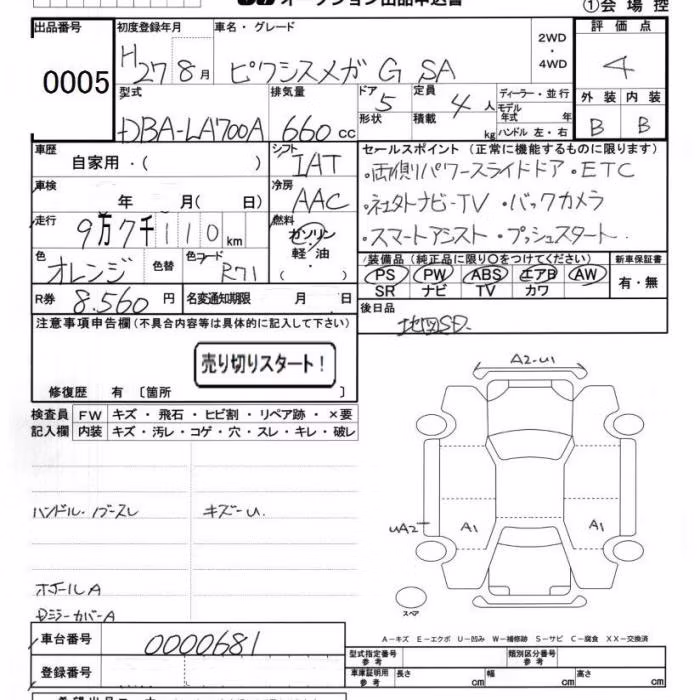 オークション出品申込書
①会場控
出品番号
0005
初度登録年月
H27年8月
車名・グレード
ピクシスメガ G SA
2WD
・
4WD
評価点
4
外装 内装
B B
型式
DBA-LA700A
排気量
660cc
ドア
5
形状
定員
4人
積載
kg
ディーラー・並行
モデル年式 年
ハンドル 左・右
車歴
自家用・( )
シフト
IAT
車検
年 月( 日)
冷房
AAC
走行
9万7千110km
燃料
ガソリン
軽油
( )
色
オレンジ
色替
色コード
R71
R券
8.560円
名変通知期限 月 日
セールスポイント (正常に機能するものに限ります)
・両側パワースライドドア・ETC
・社外ナビ-TV ・バックカメラ
・スマートアシスト・プッシュスタート
装備品 (純正品に限り○をつけてください)
PS PW ABS エアB AW
SR ナビ TV カワ
新車保証書
有・無
後日品
地図SD.
注意事項申告欄(不具合内容等は具体的に記入して下さい)
売り切りスタート!
修復歴 有 〔箇所 〕
検査員記入欄
FW キズ・飛石・ヒビ割・リペア跡・×要
内装 キズ・汚レ・コゲ・穴・スレ・キレ・破レ
ハンドル・ノブースレ
キズーU.
ホイールA
Dミラーカバー A
A2-U1
UA2
A1
A1
スペア
A-キズ E-エクボ U-凹み W-補修跡 S-サビ C-腐食 XX-交換済
車台番号
0000681
登録番号
型式指定番号
参考
類別区分番号
参考
車庫証明用
参考
長さ cm
幅 cm
高さ cm